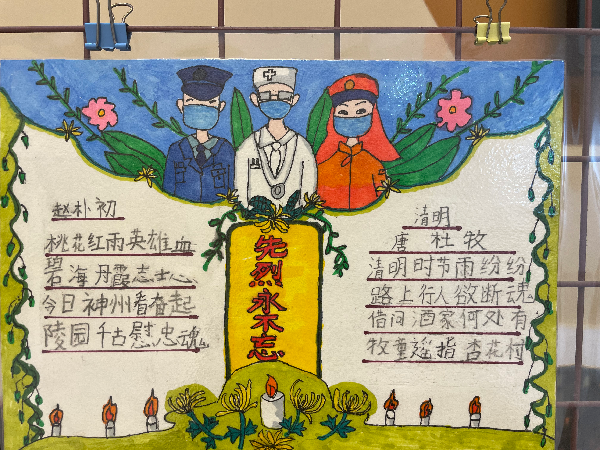 赵朴初
桃花红雨英雄血
碧海丹霞志士心
今日神州看奋起
陵园千古慰忠魂
先烈永不忘
清明
唐 杜牧
清明时节雨纷纷
路上行人欲断魂
借问酒家何处有
牧童遥指杏花村